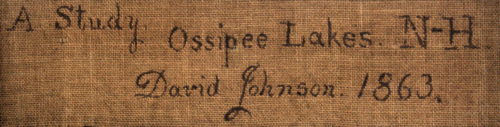 A Study. Ossipee Lakes. N-H
David Johnson. 1863.